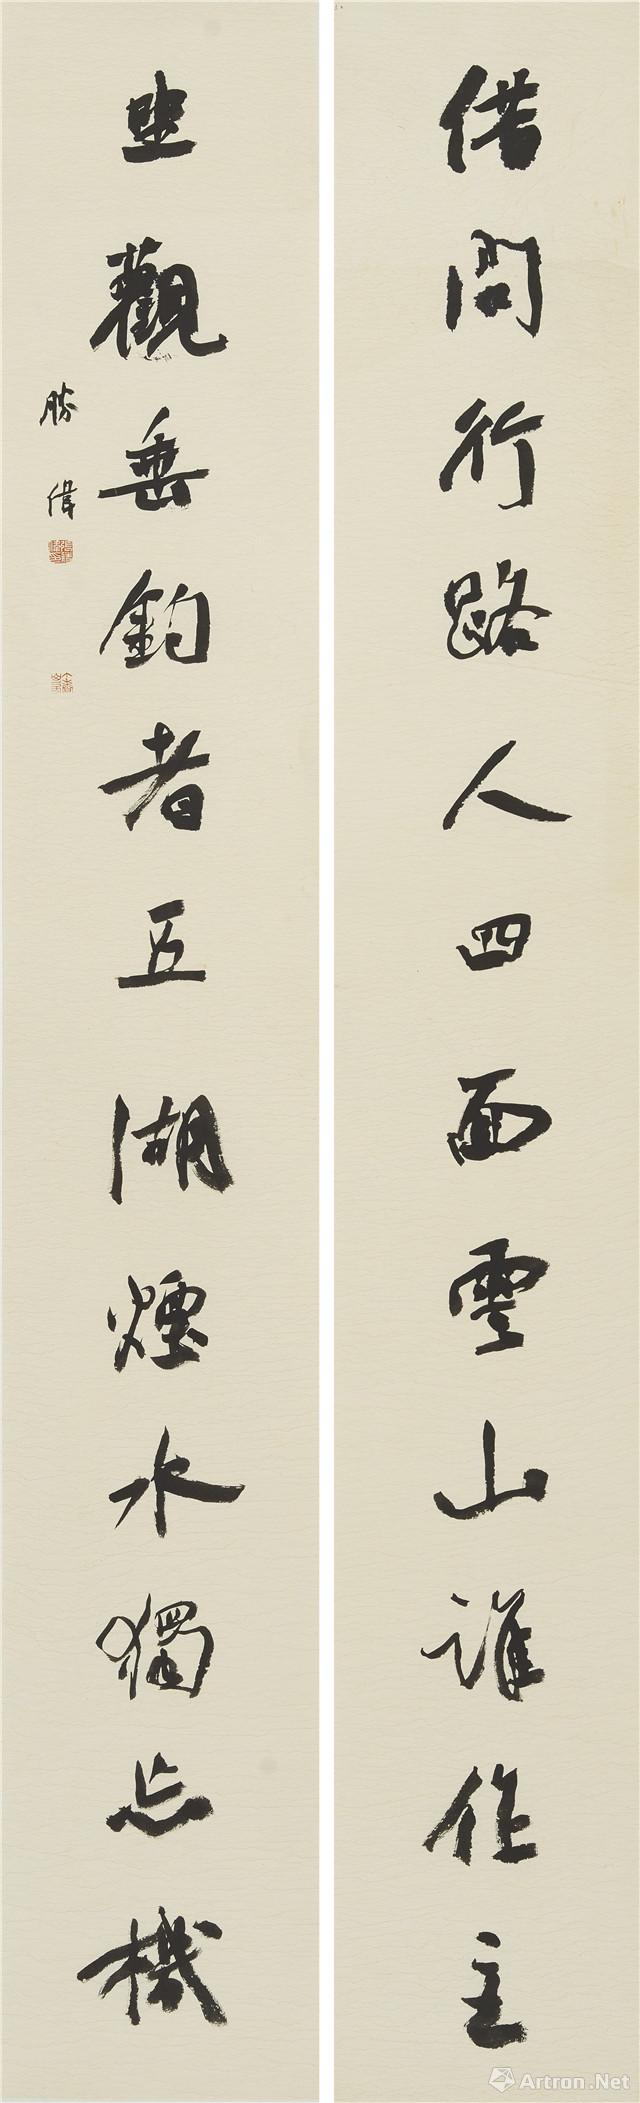 借問行路人四面雲山誰作主
坐觀垂釣者五湖煙水獨忘機
勝偉
Artron.Net